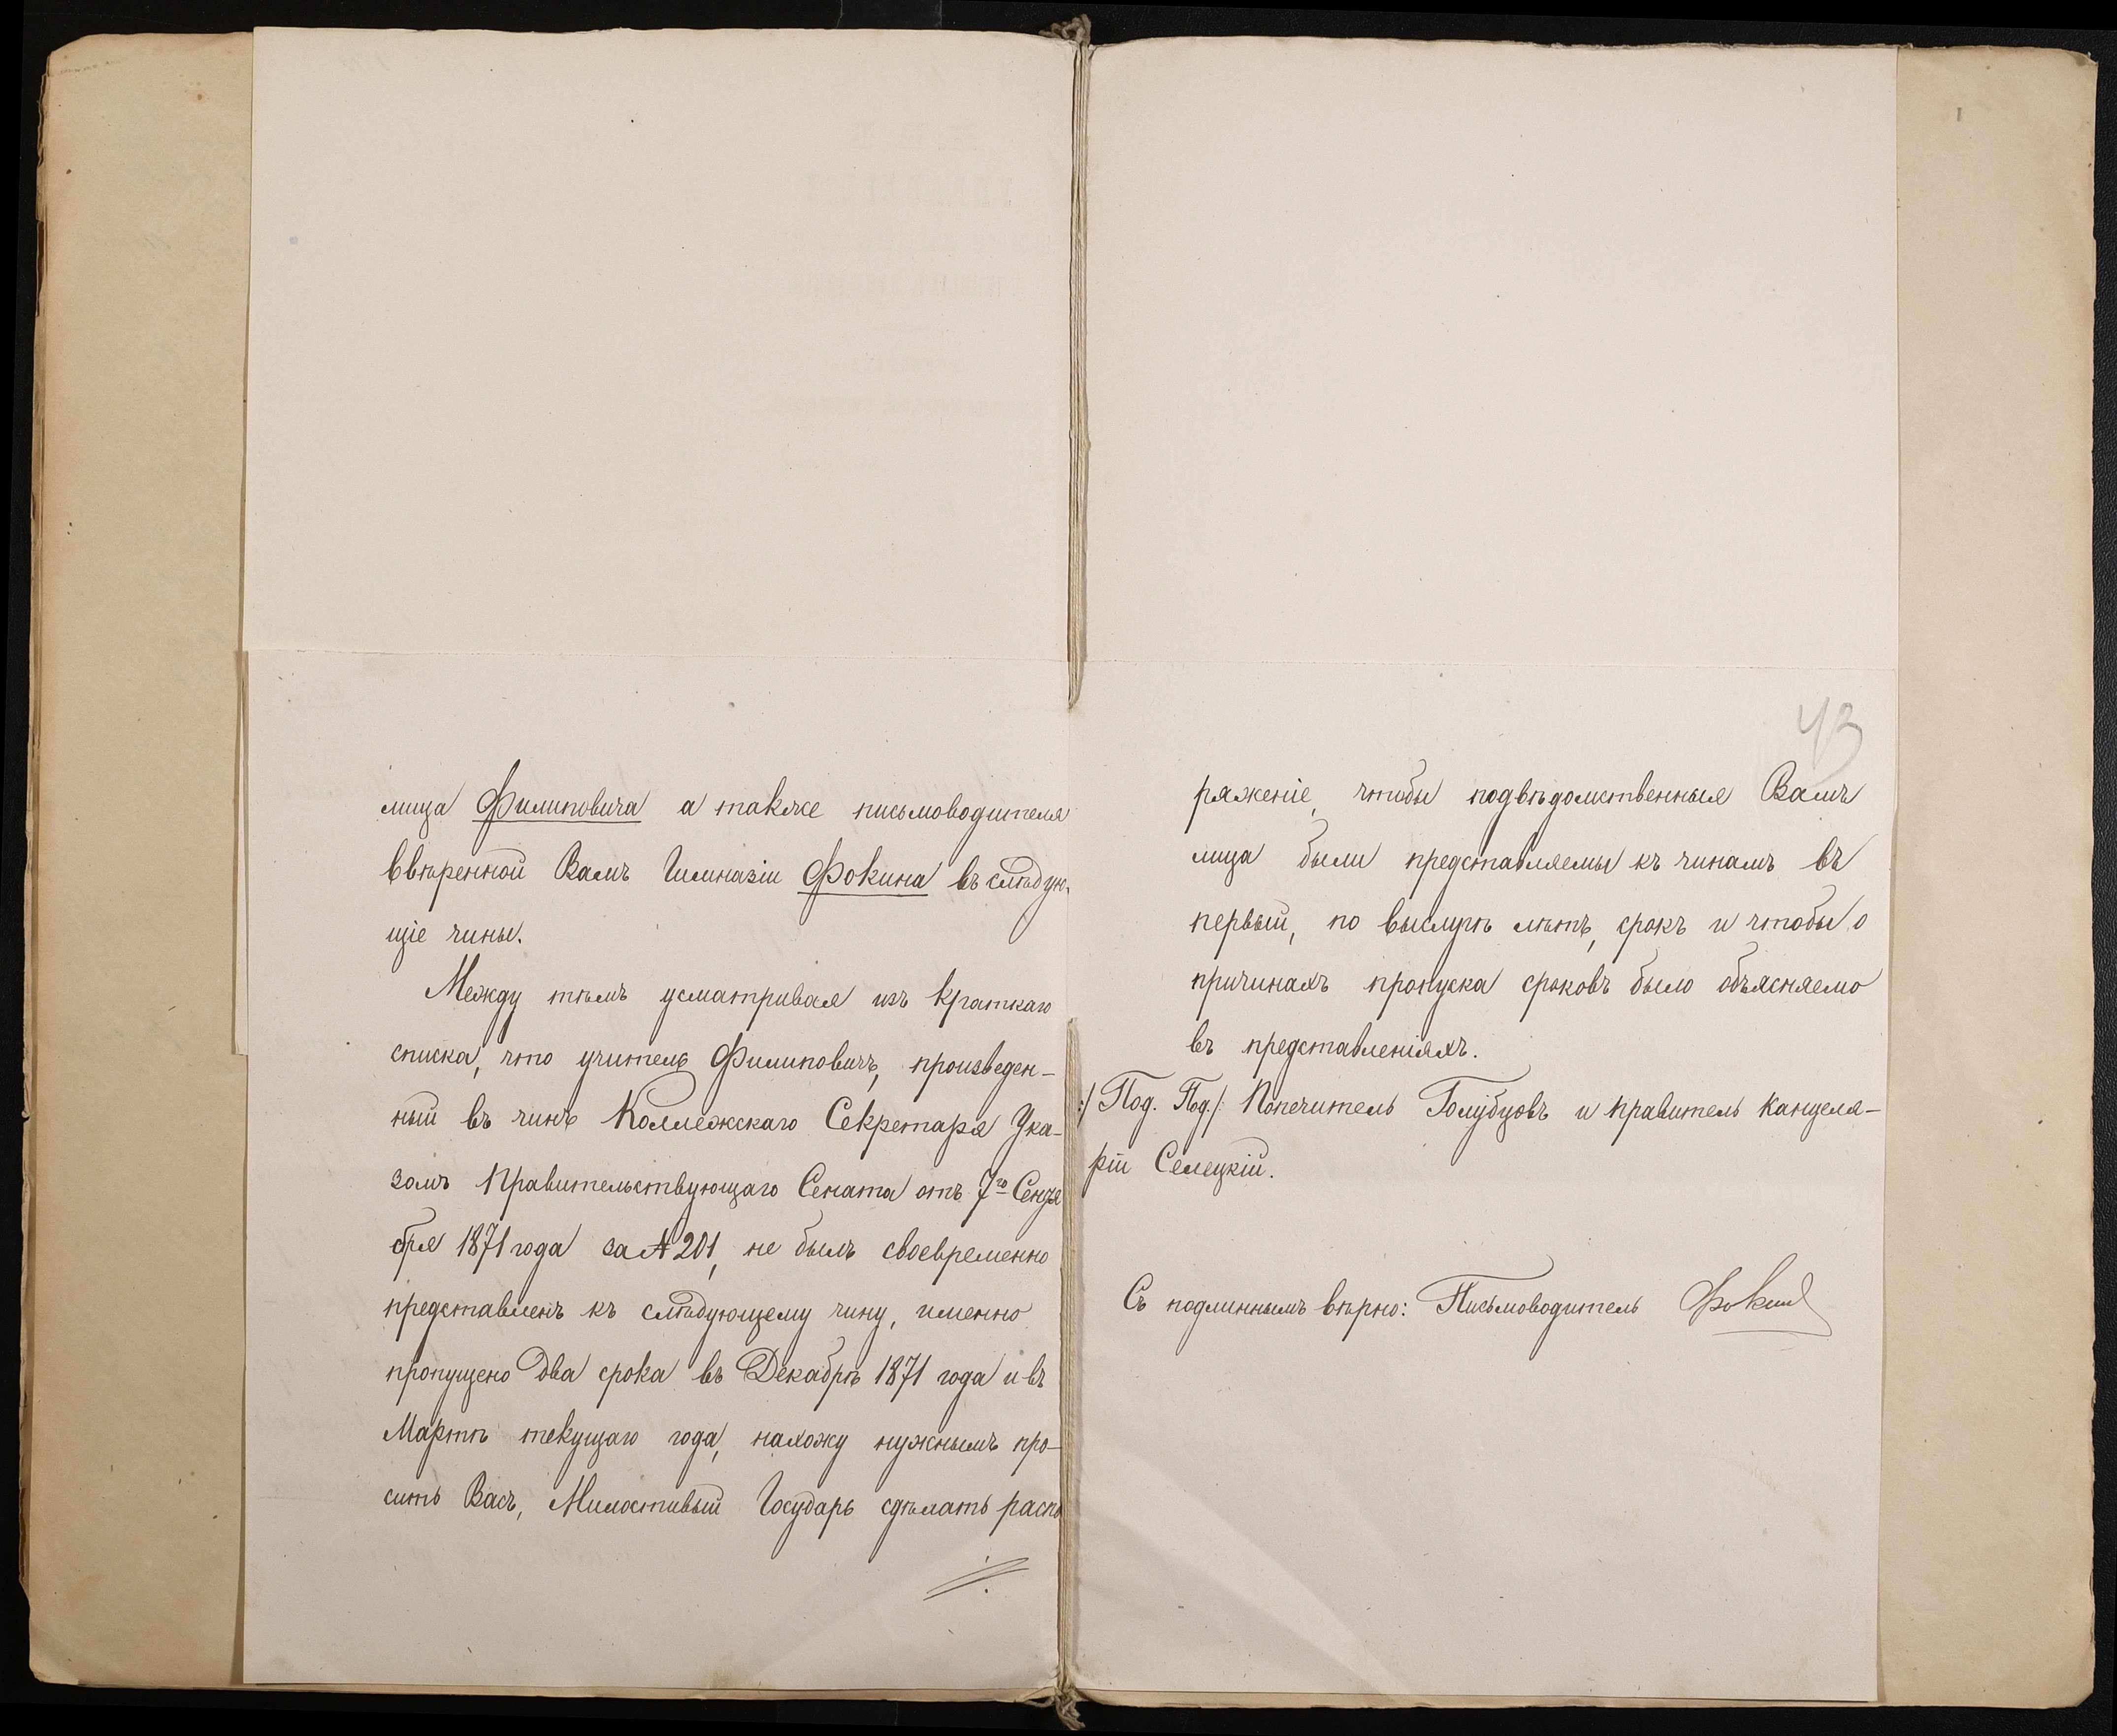 лища Филиповича а также письмоводителя
ввѣренной Вамъ Гимназіи Фокина въ слѣдую-
щіе чины.
Между тѣмъ усматривая изъ краткаго
списка, что учитель Филиповичъ, произведен-
ный въ чинъ Коллежскаго Секретаря Ука-
зомъ Правительствующаго Сената отъ 7го Сентя
бря 1871 года за № 201, не былъ своевременно
представленъ къ слѣдующему чину, именно
пропущено два срока въ Декабрѣ 1871 года и въ
Мартѣ текущаго года, нахожу нужнымъ про-
сить Васъ, Милостивый Государь сдѣлать распо
43
ряженіе, чтобы подвѣдомственныя Вамъ
лица были представляемы къ чинамъ въ
первый, по выслугѣ лѣтъ, срокъ и чтобы о
причинахъ пропуска сроковъ было объясняемо
въ представленіяхъ.
:/Под. Под./: Попечитель Голубцовъ и правитель канцеля-
ріи Селецкій.
Съ подлиннымъ вѣрно: Письмоводитель Фокинъ